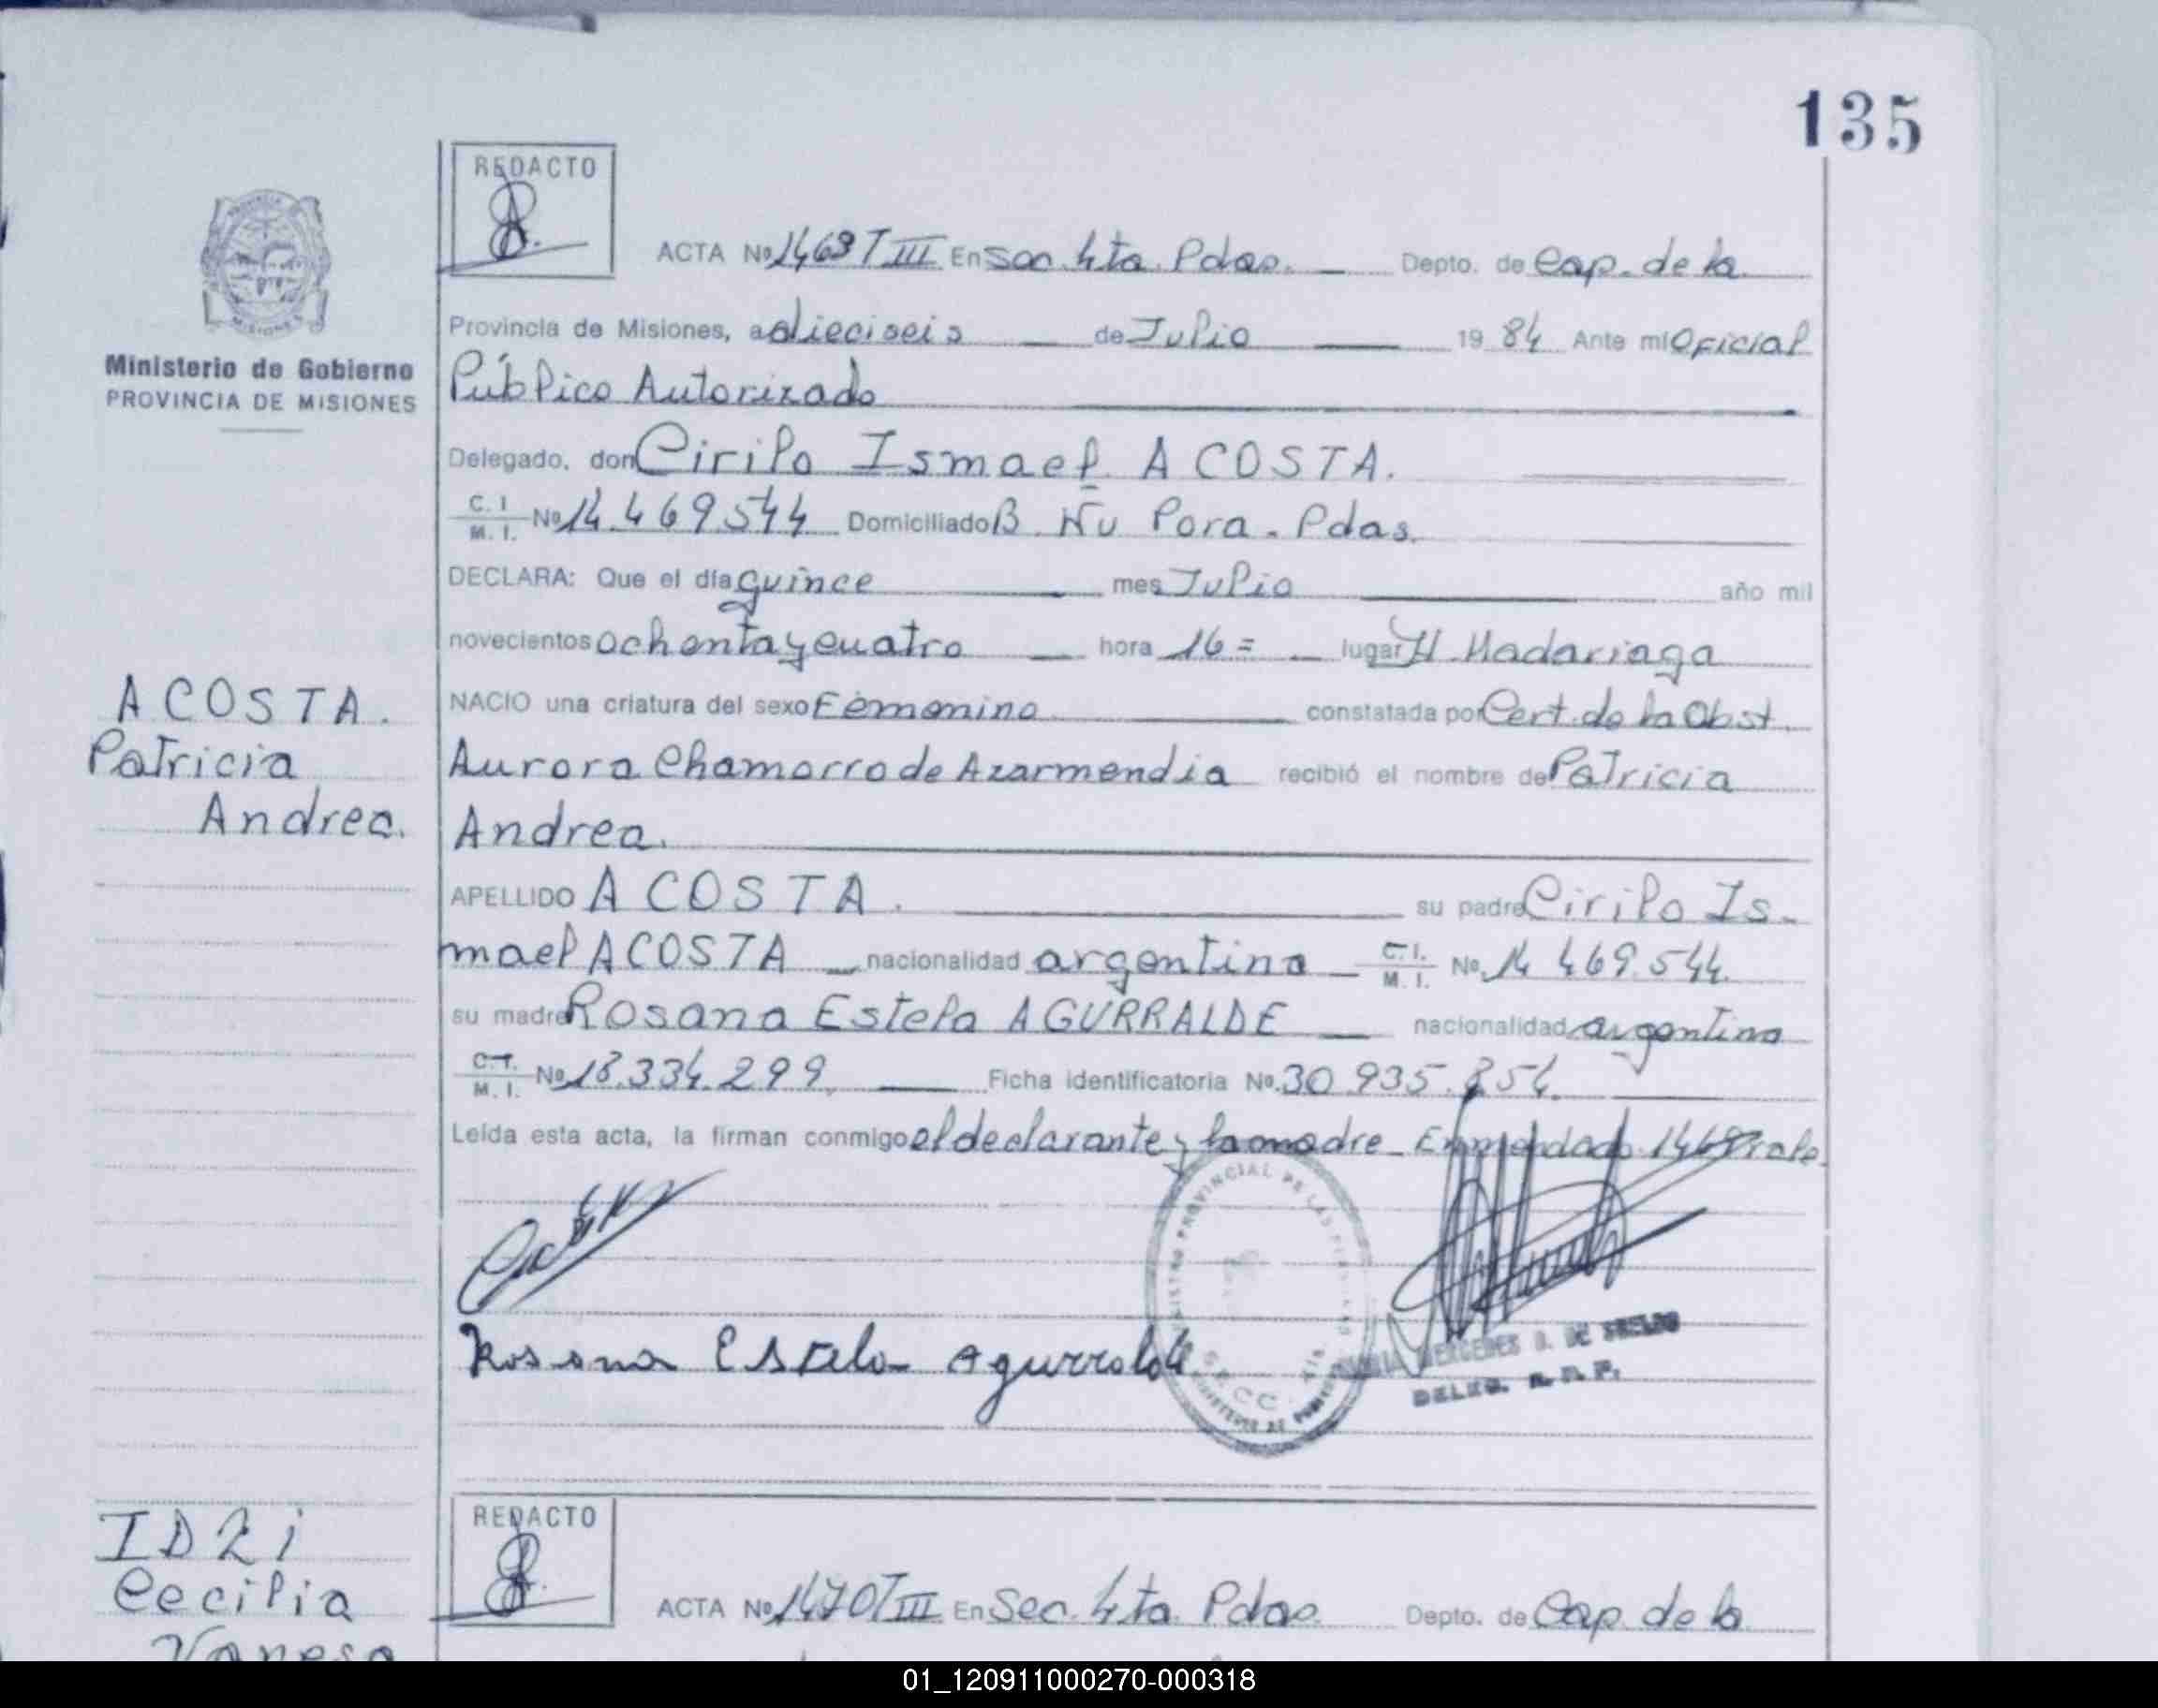 135
REDACTO
ACTA Nº 1469 T III En Sec. 4ta. Pdas. Depto. de Cap. de la
Provincia de Misiones, a dieciseis de Julio 19 84 Ante mi Oficial
Público Autorizado
Ministerio de Gobierno
PROVINCIA DE MISIONES
Delegado, don Cirilo Ismael ACOSTA.
C. I. M. I. Nº 14.469.544 Domiciliado B. Ñu Pora. Pdas.
DECLARA: Que el día quince mes Julio año mil
novecientos ochenta y cuatro hora 16= lugar H. Madariaga
ACOSTA.
Patricia
Andrea.
NACIO una criatura del sexo Femenino constatada por Cert. de la Obst.
Aurora Chamorro de Azarmendia recibió el nombre de Patricia
Andrea.
APELLIDO ACOSTA. su padre Cirilo Is-
mael ACOSTA nacionalidad argentina C.I. M. I. Nº 14 469.544.
su madre Rosana Estela AGURRALDE nacionalidad argentina
C.I. M. I. Nº 18.334.299. Ficha identificatoria Nº 30.935.854.
Leída esta acta, la firman conmigo el declarante y la madre. Enmendado 1469 vale.
Rosana Estela Agurralde
MERCEDES DE
DELEG. R. D. P.
IDZi
Cecilia
Vanesa
REDACTO
ACTA Nº 1470 T III En Sec. 4ta. Pdas. Depto. de Cap. de la
01_120911000270-000318